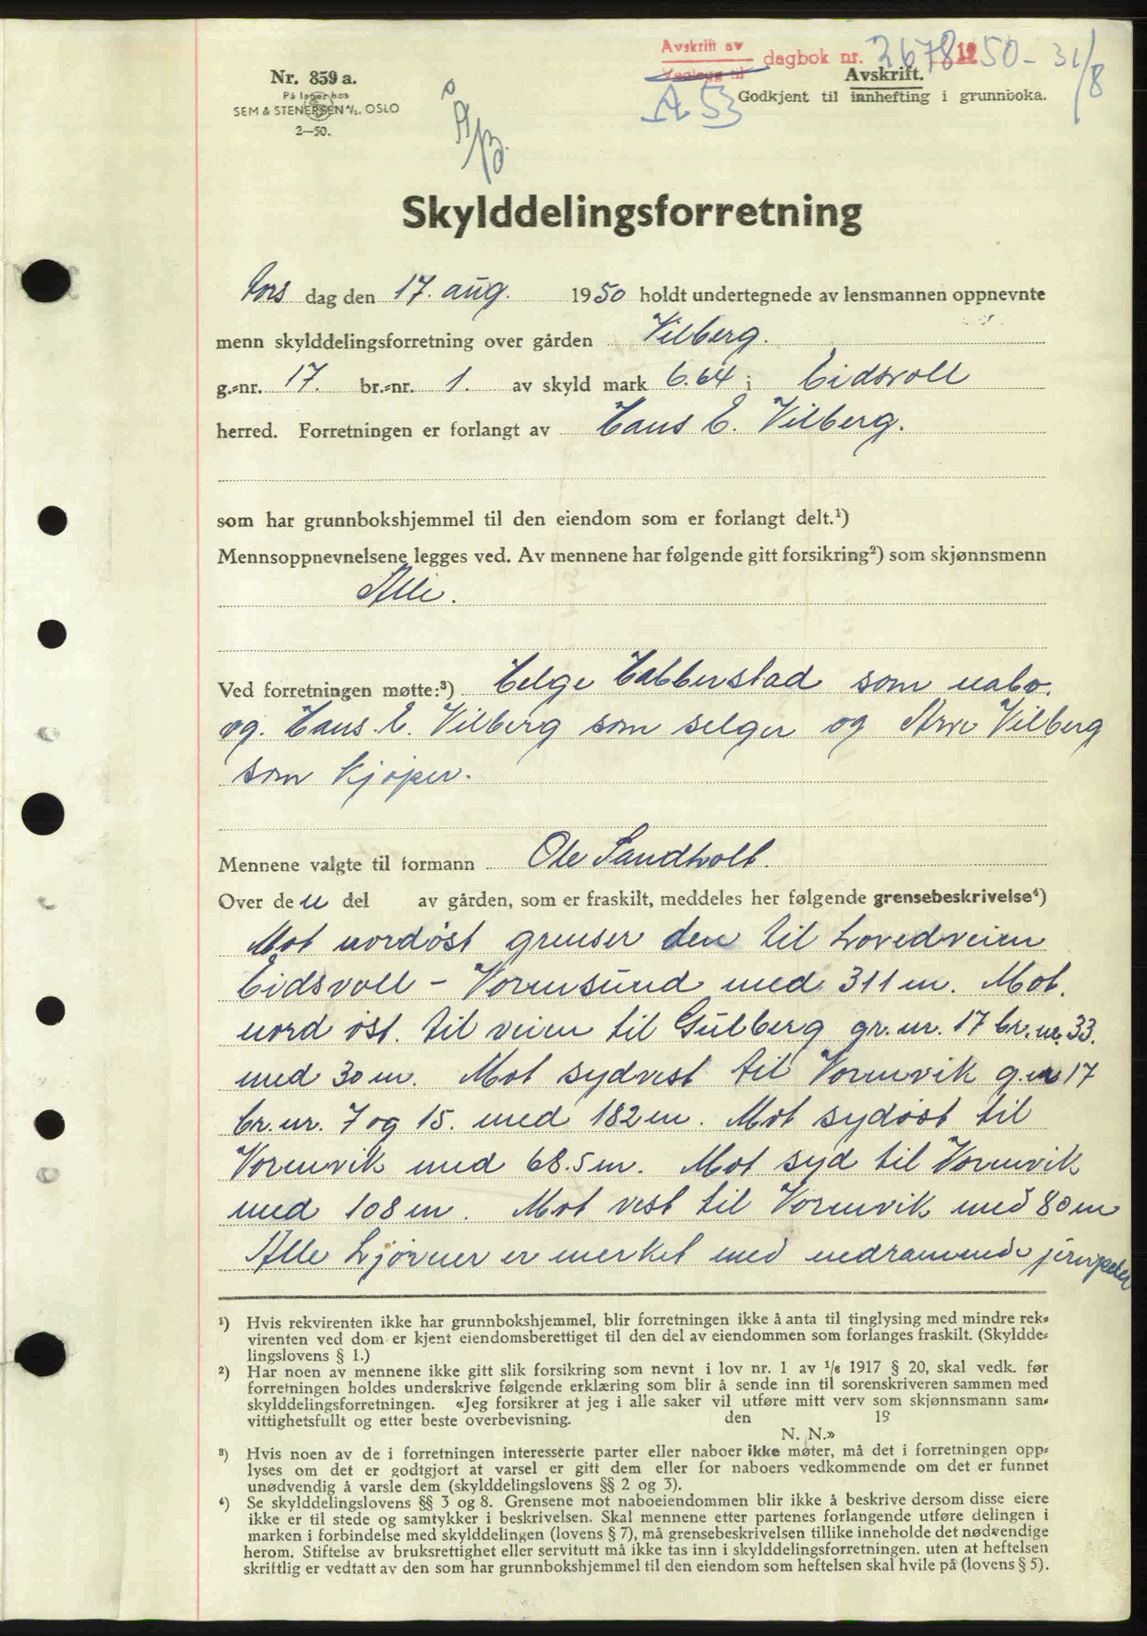 Avskrift av
Vedlegg til
dagbok nr. 2678 1950 - 31/8
Nr. 859 a.
På lager hos
SEM & STENERSEN A/S. OSLO
2—50.
Avskrift.
A 53
Godkjent til innhefting i grunnboka.
Å/B.
Skylddelingsforretning
Tors dag den 17. aug. 1950 holdt undertegnede av lensmannen oppnevnte
menn skylddelingsforretning over gården Vilberg.
g.-nr. 17. br.-nr. 1. av skyld mark 6.64 i Eidsvoll
herred. Forretningen er forlangt av Hans E. Vilberg.
som har grunnbokshjemmel til den eiendom som er forlangt delt.¹)
Mennsoppnevnelsene legges ved. Av mennene har følgende gitt forsikring²) som skjønnsmenn
Alle.
Ved forretningen møtte:³) Helge Habberstad som nabo.
og. Hans E. Vilberg som selger og Arve Vilberg
som kjøper.
Mennene valgte til formann Ole Sandholt.
Over den del av gården, som er fraskilt, meddeles her følgende grensebeskrivelse⁴)
Mot nordøst grenser den til hovedveien
Eidsvoll - Vormsund med 311 m. Mot.
nord øst. til veien til Gulberg gr. nr. 17 br. nr. 33.
med 30 m. Mot sydvest til Vormvik g.nr 17
br. nr. 7 og 15. med 182 m. Mot sydøst til
Vormvik med 68.5 m. Mot syd til Vormvik
med 108 m. Mot vest til Vormvik med 80 m
Alle hjørner er merket med nedrammede jernpeler
¹) Hvis rekvirenten ikke har grunnbokshjemmel, blir forretningen ikke å anta til tinglysing med mindre rek-
virenten ved dom er kjent eiendomsberettiget til den del av eiendommen som forlanges fraskilt. (Skyldde-
lingslovens § 1.)
²) Har noen av mennene ikke gitt slik forsikring som nevnt i lov nr. 1 av 1/6 1917 § 20, skal vedk. før
forretningen holdes underskrive følgende erklæring som blir å sende inn til sorenskriveren sammen med
skylddelingsforretningen. «Jeg forsikrer at jeg i alle saker vil utføre mitt verv som skjønnsmann sam-
vittighetsfullt og etter beste overbevisning. den 19
N. N.»
³) Hvis noen av de i forretningen interesserte parter eller naboer ikke møter, må det i forretningen opp-
lyses om det er godtgjort at varsel er gitt dem eller for naboers vedkommende om det er funnet
unødvendig å varsle dem (skylddelingslovens §§ 2 og 3).
⁴) Se skylddelingslovens §§ 3 og 8. Grensene mot naboeiendommen blir ikke å beskrive dersom disse eiere
ikke er til stede og samtykker i beskrivelsen. Skal mennene etter partenes forlangende utføre delingen i
marken i forbindelse med skylddelingen (lovens § 7), må grensebeskrivelsen tillike inneholde det nødvendige
herom. Stiftelse av bruksrettighet eller servitutt må ikke tas inn i skylddelingsforretningen. uten at heftelsen
skriftlig er vedtatt av den som har grunnbokshjemmel til den eiendom som heftelsen skal hvile på (lovens § 5).